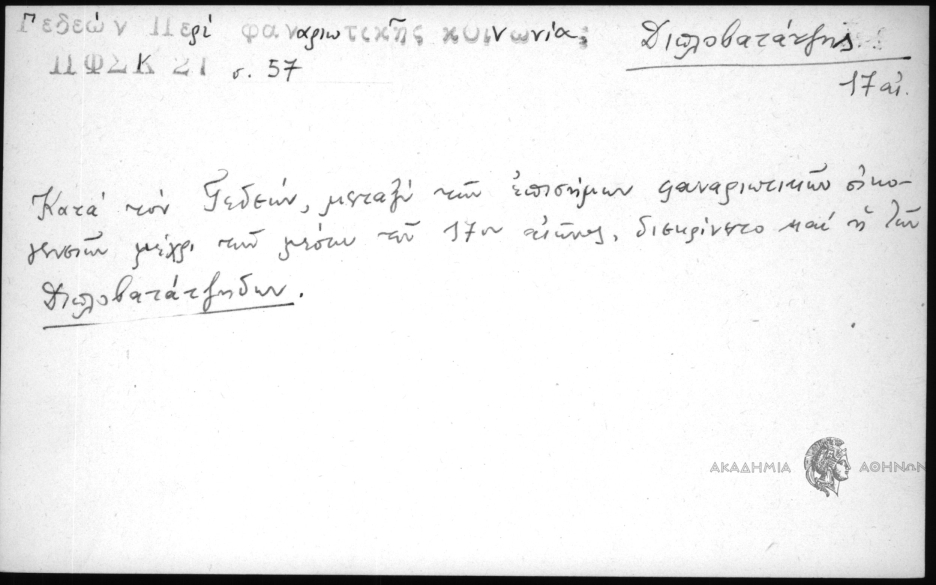 Γεδεών Περί φαναριωτικῆς κοινωνίας
ΠΦΣΚ 21 σ. 57
Διπλοβατάτζης
17 αἰ.
Κατά τόν Γεδεών, μεταξύ τῶν ἐπισήμων φαναριωτικῶν οἰκο-
γενειῶν μέχρι τῶν μέσων τοῦ 17ου αἰῶνος, διεκρίνετο καί ἡ τῶν
Διπλοβατάτζηδων.
ΑΚΑΔΗΜΙΑ ΑΘΗΝΩΝ